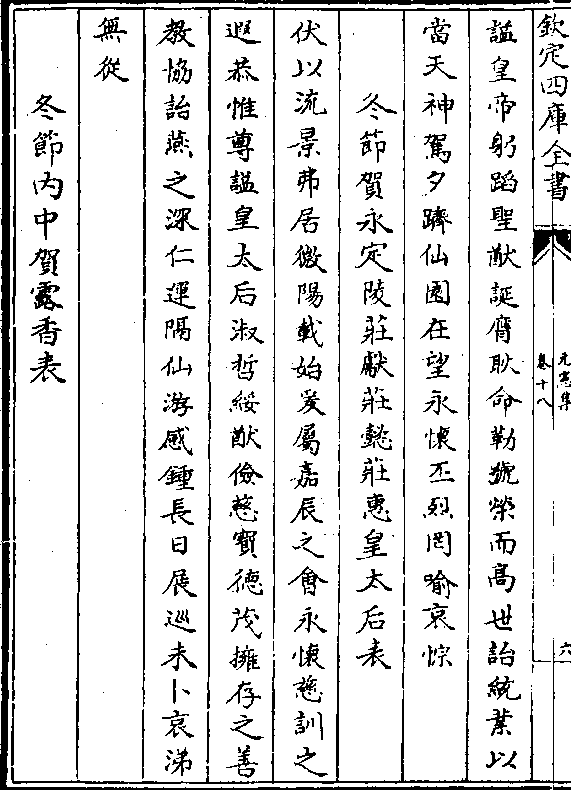 欽定四庫全書
元憲集
卷十八
六
諡皇帝躬蹈聖猷誕膺耿命勒號榮而髙世詒統業以
當天神駕夕躋仙園在望永懷丕烈罔喻哀悰
冬節賀永定陵莊獻莊懿莊惠皇太后表
伏以流景弗居微陽載始爰屬嘉辰之會永懷慈訓之
遐恭惟尊諡皇太后淑哲綏猷儉慈寳德茂擁存之善
教協詒燕之深仁運隔仙游感鍾長日展巡未卜哀涕
無從
冬節内中賀露香表